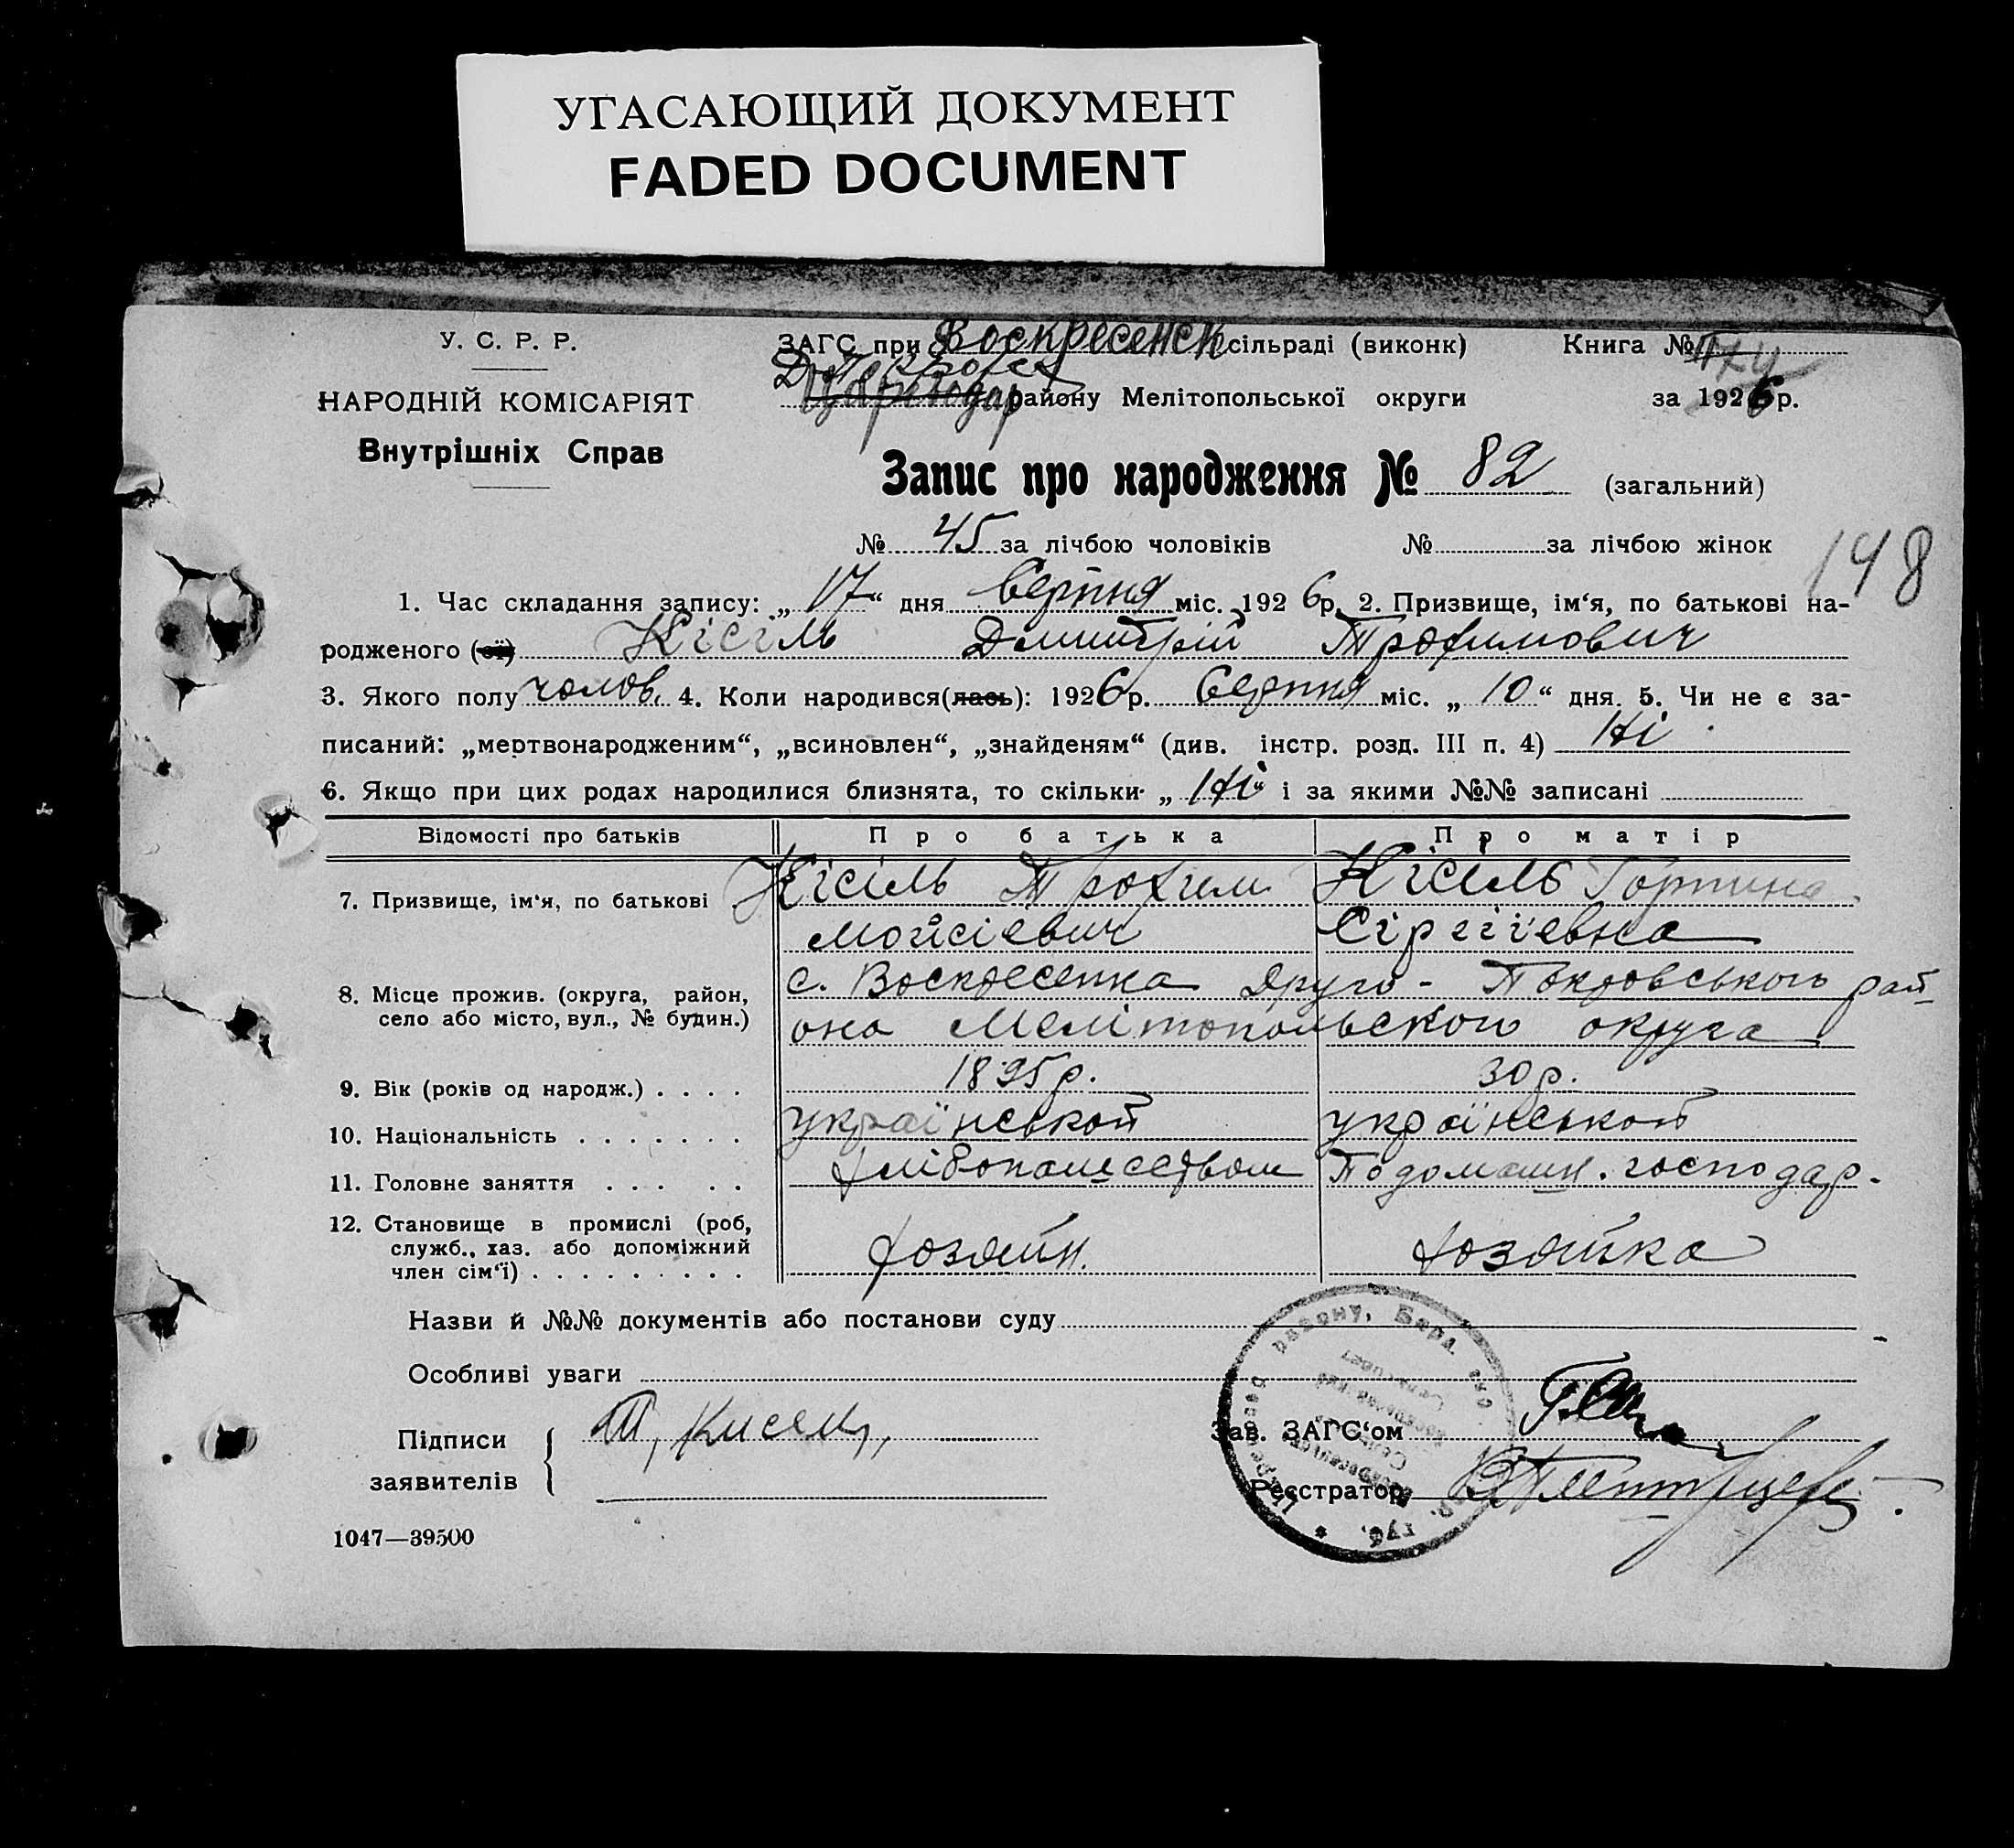 УГАСАЮЩИЙ ДОКУМЕНТ
FADED DOCUMENT
У. С. Р. Р.
НАРОДНІЙ КОМІСАРІЯТ
Внутрішніх Справ
ЗАГС при Воскресенск сільраді (виконк) Книга №
району Мелітопольської округи за 1926 р.
Запис про народження № 82 (загальний)
№ 45 за лічбою чоловіків № за лічбою жінок
148
1. Час складання запису: „ 17 “ дня Серпня міс. 1926 р. 2. Призвище, ім‘я, по батькові на-
родженого (ої) Кісіль Дмитрій Трофимович
3. Якого полу чолов. 4. Коли народився(лась): 1926 р. Серпня міс. „ 10 “ дня. 5. Чи не є за-
писаний: „мертвонародженим“, „всиновлен“, „знайденям“ (див. інстр. розд. III п. 4) Ні
6. Якщо при цих родах народилися близнята, то скільки „ Ні “ і за якими №№ записані
Відомості про батьків Про батька Про матір
7. Призвище, ім‘я, по батькові Кісіль Трохим Кісіль Горпина
Мойсієвич Сіргіївна
8. Місце прожив. (округа, район, село або місто, вул., № будин.) с. Воскресенка Друго - Покровського рай
она Мелітопольского округа
9. Вік (років од народж.) . . . . 1895 р. 30 р.
10. Національність . . . . . . . української української
11. Головне заняття . . . . . хлібопашеством По домашн. господар.
12. Становище в промислі (роб, служб., хаз. або допоміжний член сім‘ї) . . . . . . . . . хозяйн. хозяйка
Назви й №№ документів або постанови суду
Особливі уваги
Підписи заявителів Т, Кисель,
Зав. ЗАГС‘ом
Реєстратор
1047—39500